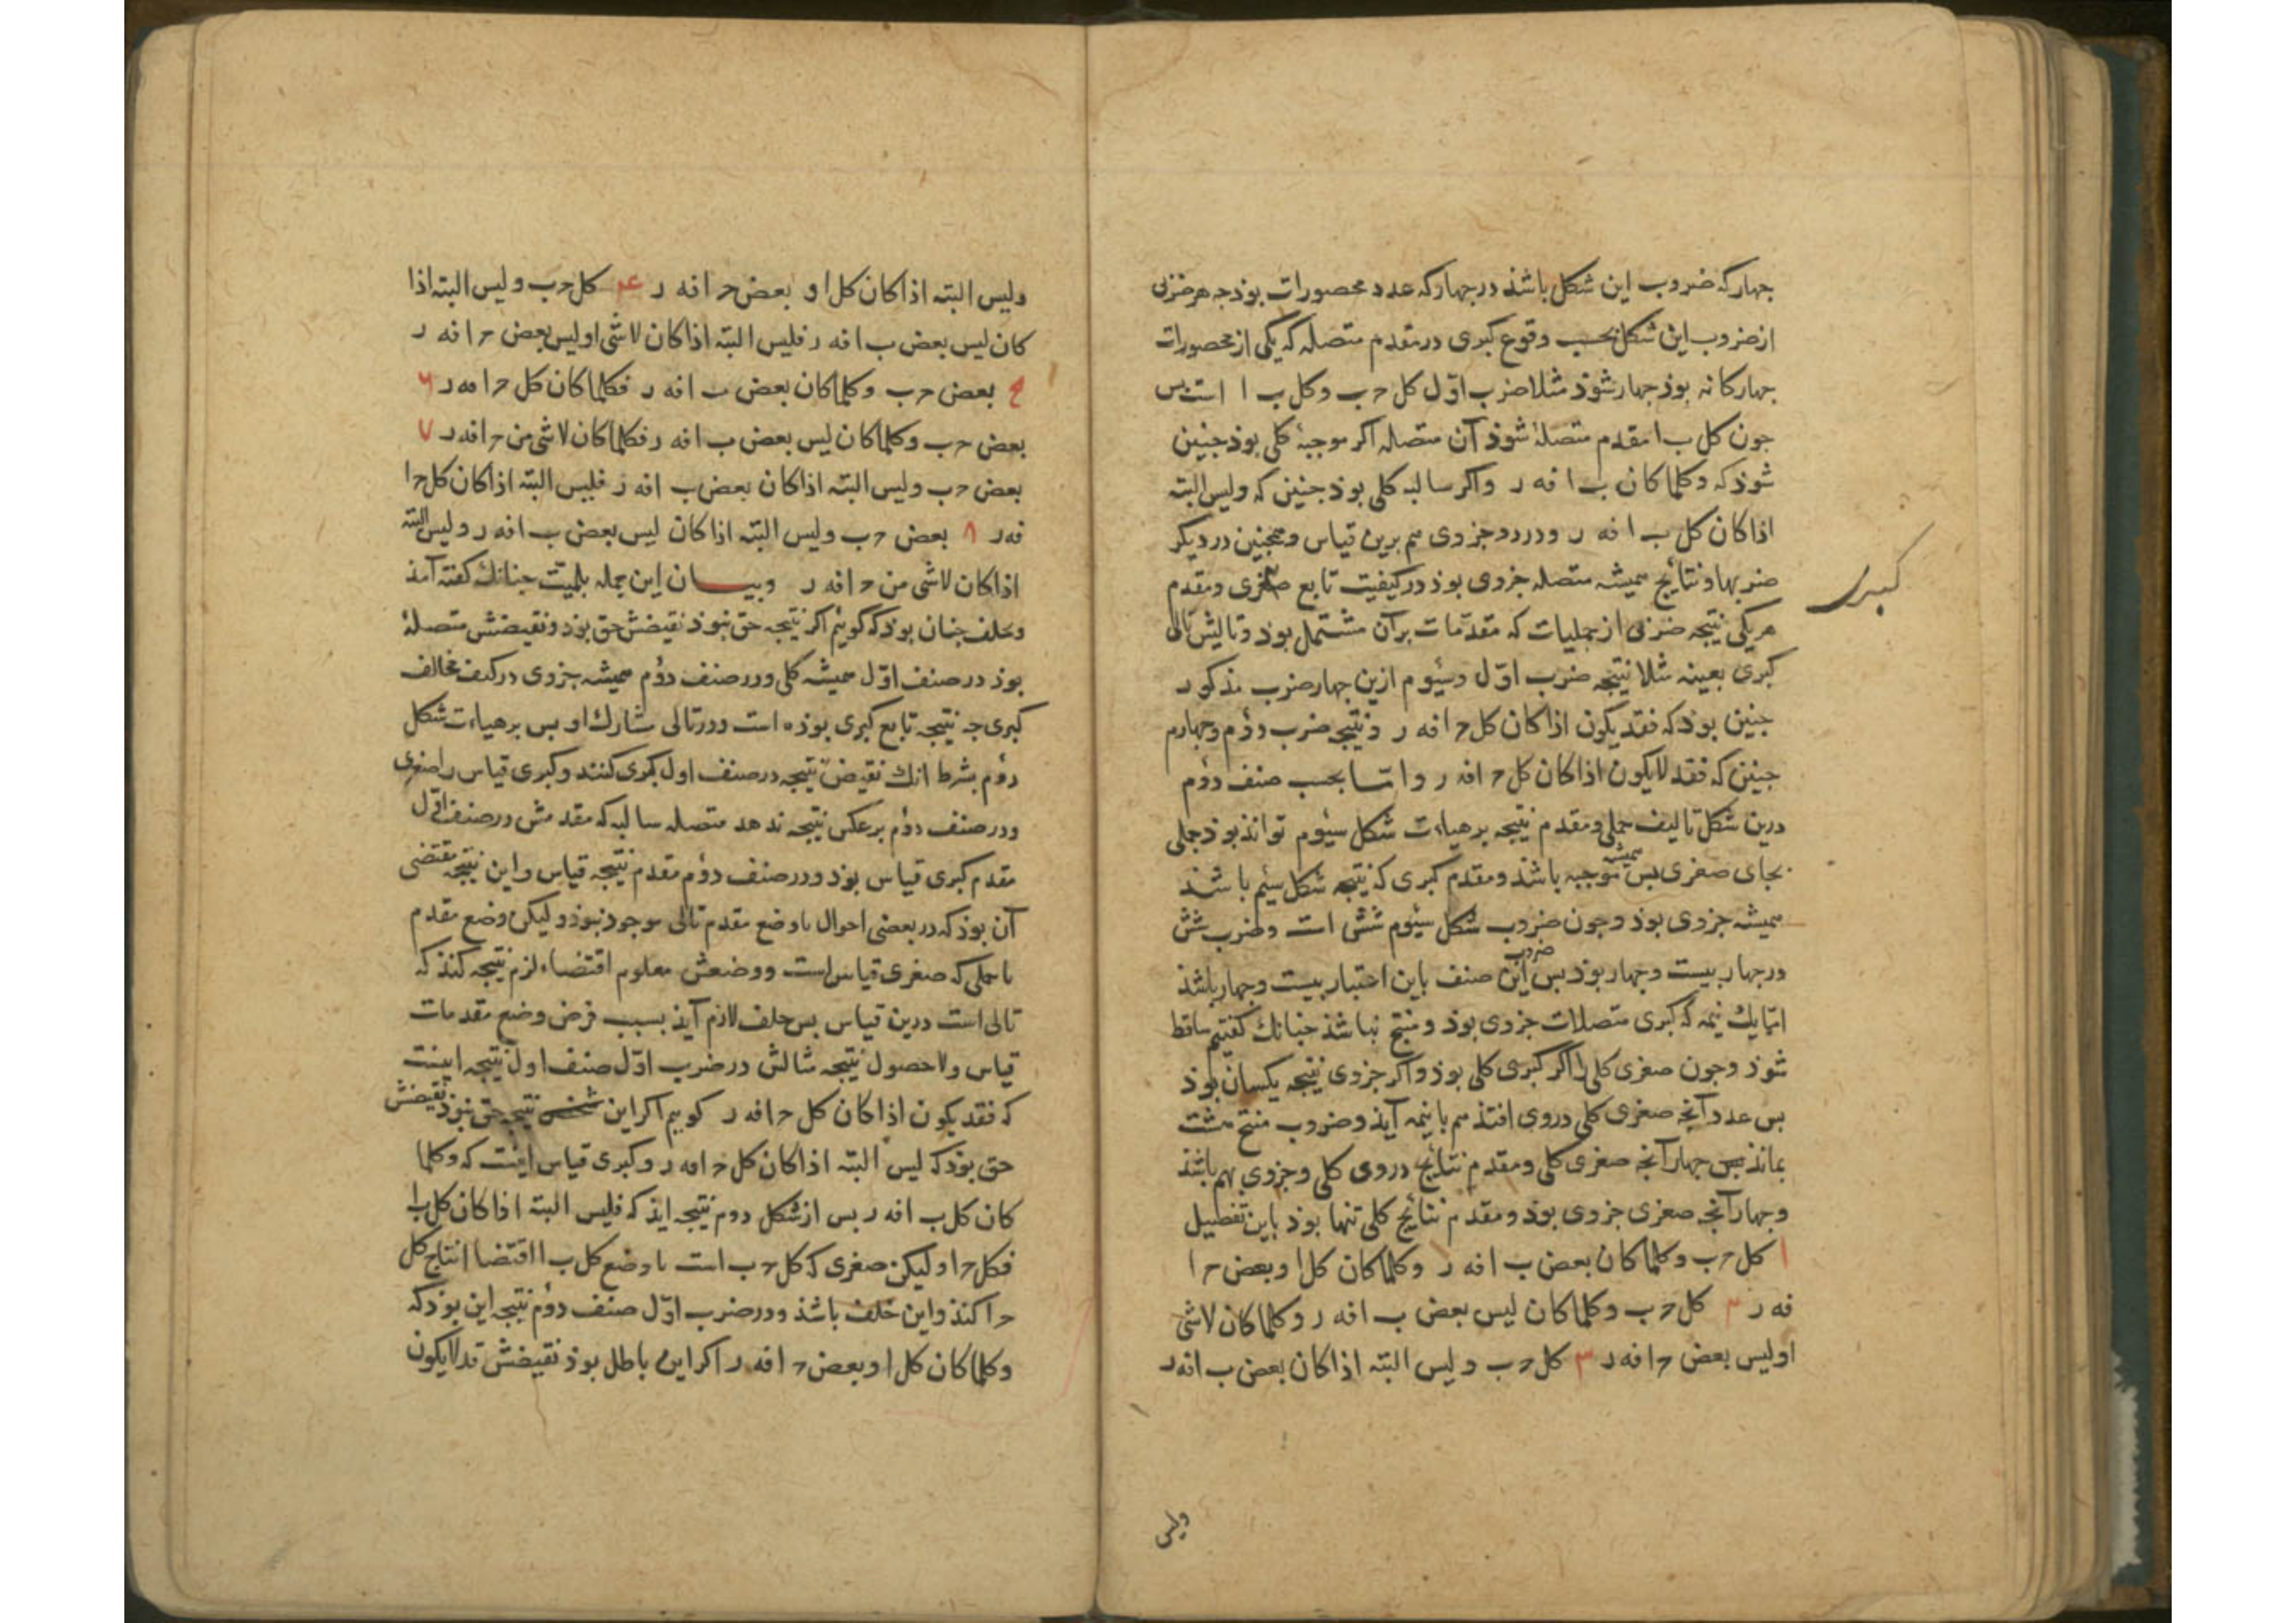 جهار که ضروب این شکل باشذ در جهار که عدد محصورات بوذ جه هر ضربی
از ضروب این شکل بحسب وقوع کبری در مقدم متصله که یکی از محصورات
جهارکانه بوذ جهار شوذ مثلا ضرب اوّل کل حـ ب و کل ب ا است بس
جون کل ب ا مقدم متصلهٔ شوذ آن متصله اکر موجبهٔ کلی بوذ جنین
شوذ که وکلما کان ب ا فه ر واکر سالبه کلی بوذ جنین که ولیس البتة
اذا کان کل ب ا فه ر ودر دو جزوی هم برین قیاس وهمجنین در دیکر
ضربها ونتایج همیشه متصله جزوی بوذ در کیفیت تابع صغری ومقدم
کبری
هر یکی نتیجه ضربی از حملیات که مقدّمات بر آن مشتمل بوذ وتالیش تالی
کبری بعینه مثلا نتیجه ضرب اوّل وسیُوم ازین جهار ضرب مذکور
جنین بوذ که فقد یکون اذا کان کل حـ ا فه ر ونتیجه ضرب دوُم وجهارم
جنین که فقد لایکون اذا کان کل حـ ا فه ر وامّا بحسب صنف دوُم
درین شکل تالیف حملی ومقدم نتیجه بر هیاءت شکل سیُوم تواند بوذ حملی
بجای صغری بس همیشه موجبه باشذ ومقدم کبری که نتیجه شکل سیُم باشذ
همیشه جزوی بوذ وجون ضروب شکل سیُوم شش است وضرب شش
در جهار بیست وجهار بوذ بس ضروب این صنف باین اعتبار بیست وجهار باشذ
امّا یك نیمه که کبری متصلات جزوی بوذ ومنتج نباشذ جنانك کفتیم ساقط
شوذ وجون صغری کلی را اکر کبری کلی بوذ واکر جزوی نتیجه یکسان بوذ
بس عدد آنجه صغری کلی در وی افتذ هم با نیمه آیذ وضروب منتج هشت
بماند بس جهار آنجه صغری کلی ومقدم نتایج در وی کلی وجزوی بهم باشذ
وجهار آنجه صغری جزوی بوذ ومقدم نتایج کلی تنها بوذ باین تفصیل
۱ کل حـ ب وکلما کان بعض ب ا فه ر وکلما کان کل ا و بعض حـ ا
فه ر ۲ کل حـ ب وکلما کان لیس بعض ب ا فه ر وکلما کان لاشی
او لیس بعض حـ ا فه ر ۳ کل حـ ب ولیس البتة اذا کان بعض ب ا فه ر
ولیس
ولیس البتة اذا کان کل ا و بعض حـ ا فه ر ۴ کل حـ ب ولیس البتة اذا
کان لیس بعض ب ا فه ر فلیس البتة اذا کان لاشی او لیس بعض حـ ا فه ر
بعض حـ ب وکلما کان بعض ب ا فه ر فکلما کان کل حـ ا فه ر ۶
بعض حـ ب وکلما کان لیس بعض ب ا فه ر فکلما کان لاشی من حـ ا فه ر ۷
بعض حـ ب ولیس البتة اذا کان بعض ب ا فه ر فلیس البتة اذا کان کل حـ ا
فه ر ۸ بعض حـ ب ولیس البتة اذا کان لیس بعض ب ا فه ر ولیس البتة
اذا کان لاشی من حـ ا فه ر وبیان این جمله بلمیّت جنانك کفته آمذ
وبخلف جنان بوذ که کویُم اکر نتیجه حق نبوذ نقیضش حق بوذ ونقیضش متصلهٔ
بوذ در صنف اوّل همیشه کلی ودر صنف دوُم همیشه جزوی در کیف مخالف
کبری جه نتیجه تابع کبری بوذه است ودر تالی مشارك او بس بر هیاءت شکل
دوُم بشرط انك نقیض نتیجه در صنف اول کبری کنند وکبری قیاس را صغری
ودر صنف دوُم بر عکس نتیجه ندهد متصله سالبه که مقدمش در صنف اوّل
مقدم کبری قیاس بوذ ودر صنف دوُم مقدم نتیجه قیاس واین نتیجه مقتضی
آن بوذ که در بعضی احوال با وضع مقدم تالی موجود نبوذ ولیکن وضع مقدم
با حملی که صغری قیاس است ووضعش معلوم اقتضاء لزم نتیجه کنذ که
تالی است درین قیاس بس خلف لازم آیذ بسبب فرض وضع مقدمات
قیاس ولا حصول نتیجه مثالش در ضرب اوّل صنف اول نتیجه اینست
که فقد یکون اذا کان کل حـ ا فه ر کوییم اکر این نتیجه حق نبوذ نقیضش
حق بوذ که لیس البتة اذا کان کل حـ ا فه ر وکبری قیاس اینست که وکلما
کان کل ب ا فه ر بس از شکل دوم نتیجه ایذ که فلیس البتة اذا کان کل ب ا
فکل حـ ا ولیکن صغری که کل حـ ب است با وضع کل ب ا اقتضا انتاج کل
حـ ا کنذ واین خلف باشذ ودر ضرب اوّل صنف دوُم نتیجه این بوذ که
وکلما کان کل ا و بعض حـ ا فه ر اکر این باطل بوذ نقیضش قد لایکون